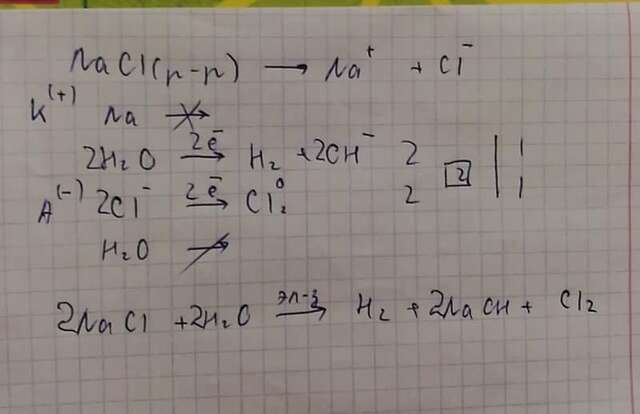 NaCl(р-р) → Na⁺ + Cl⁻
K⁽⁺⁾ Na ↛
2H₂O 2ē→ H₂ + 2OH⁻ 2 | 2 | 1
A⁽⁻⁾ 2Cl⁻ 2ē→ Cl₂⁰ 2 | 1
H₂O ↛
2NaCl + 2H₂O эл-з→ H₂ + 2NaOH + Cl₂